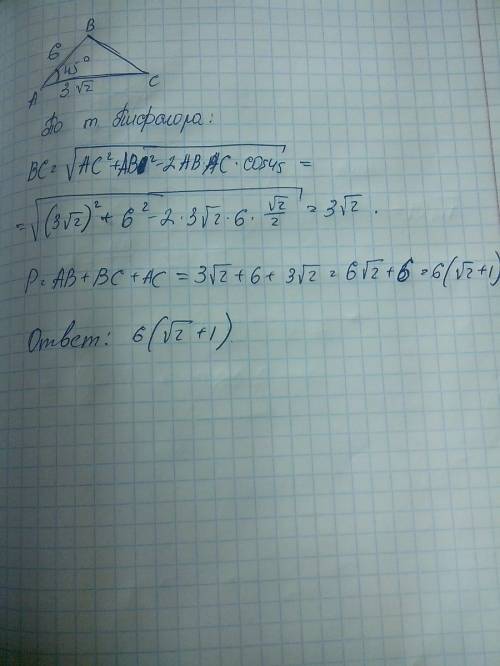 B
6
45°
A
3√2
C
По т. Пифагора:
BC = √(AC² + AB² - 2 AB·AC · cos45) =
= √((3√2)² + 6² - 2 · 3√2 · 6 · √2/2) = 3√2 .
P = AB + BC + AC = 3√2 + 6 + 3√2 = 6√2 + 6 = 6(√2+1)
Ответ: 6(√2 + 1).